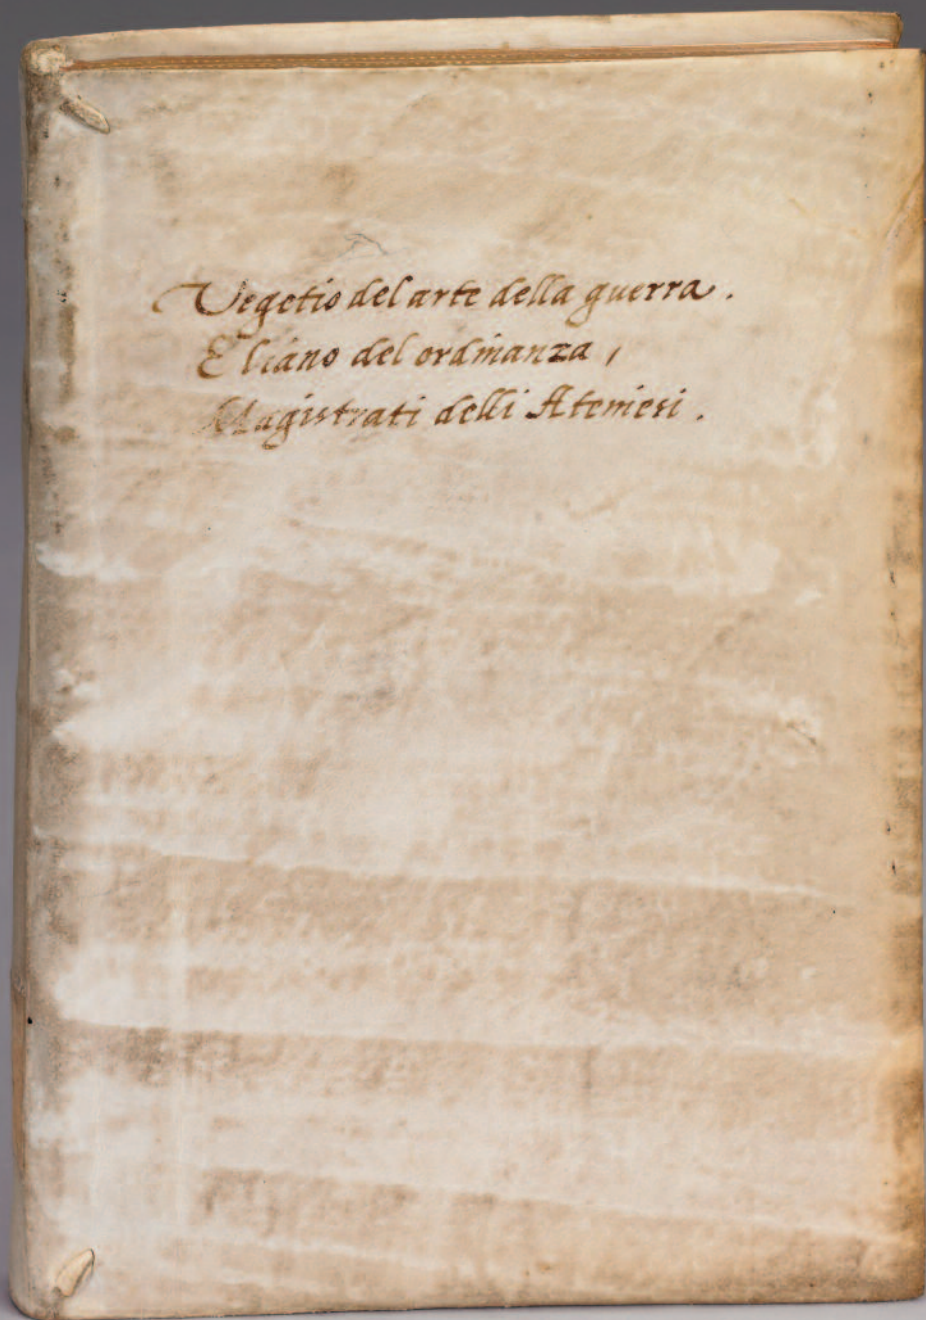 Vegetio del arte della guerra.
Eliano del ordinanza,
Magistrati delli Ateniesi.